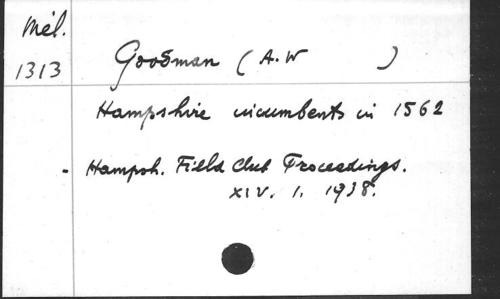 Mél.
1313
Goodman (A.W )
Hampshire incumbents in 1562
- Hampsh. Field Club Proceedings.
XIV. 1. 1938.